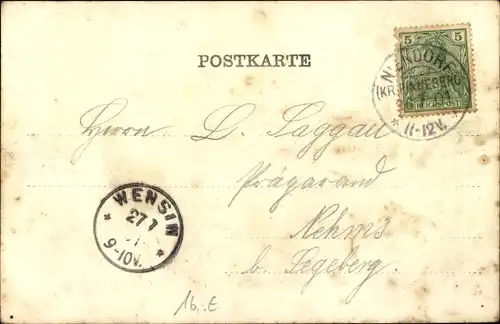 5 5
REICHSPOST
NIENDORF
(KR. PINNEBERG)
11-12V.
POSTKARTE
Herrn L. Saggau
Präparand
Nehms
b. Segeberg.
WENSIN
27 7
9-10V.
16,-E